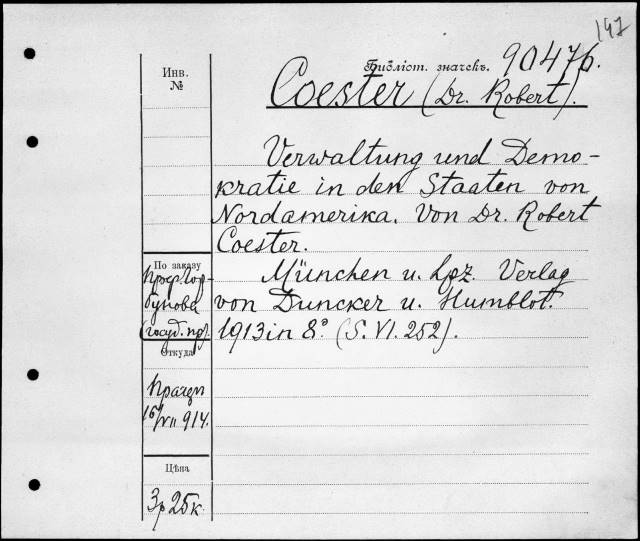 197
Библіот. значекъ. 90476.
Инв.
№
Coester (Dr. Robert).
Verwaltung und Demo-
kratie in den Staaten von
Nordamerika. Von Dr. Robert
Coester.
München u. Lpz. Verlag
von Duncker u. Humblot.
1913 in 8° (S. VI. 252).
По заказу
проф. Гор-
бунова
(госуд. пр).
Откуда
16/VII 914.
Цѣна
3р 25к.